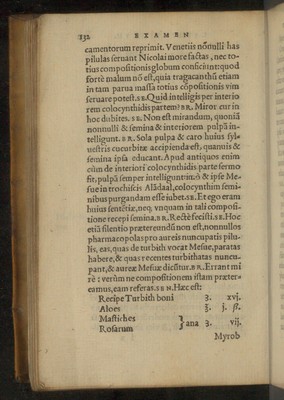 132 EXAMEN
camentorum reprimit. Venetiis nõnulli has
pilulas seruant Nicolai more factas, nec to-
tius compositionis globum conficiunt: quod
fortè malum nõ est, quia tragacanthũ etiam
in tam parua massa totius cõpositionis vim
seruare potest. SB. Quid intelligis per interio
rem colocynthidis partem? BR. Miror cur in
hoc dubites. SB. Non est mirandum, quoniã
nonnulli & semina & interiorem pulpã in-
telligunt. BR. Sola pulpa & caro huius syl-
uestris cucurbitæ accipienda est, quanuis &
semina ipsa educant. Apud antiquos enim
cùm de interiori colocynthidis parte sermo
fit, pulpã semper intelligunt: imò & ipse Me-
sue in trochiscis Alãdaal, colocynthim semi-
nibus purgandam esse iubet. SB. Et ego eram
huius sentẽtiæ, neq. vnquam in tali composi-
tione recepi semina. BR. Rectè fecisti. SB. Hoc
etiã silentio prætereundũ non est, nonnullos
pharmacopolas pro aureis nuncupatis pilu-
lis, eas, quas de turbith vocat Mesue, paratas
habere, & quas recentes turbithatas nuncu-
pant, & aureæ Mesuæ dicũtur. BR. Errant mi
rè: verùm ne compositionem istam præter-
eamus, eam referas. SEN. Hæc est:
Recipe Turbith boni ʒ. xvj.
Aloes ʒ. j. ß.
Mastiches
Rosarum } ana ʒ. vij.
Myrob